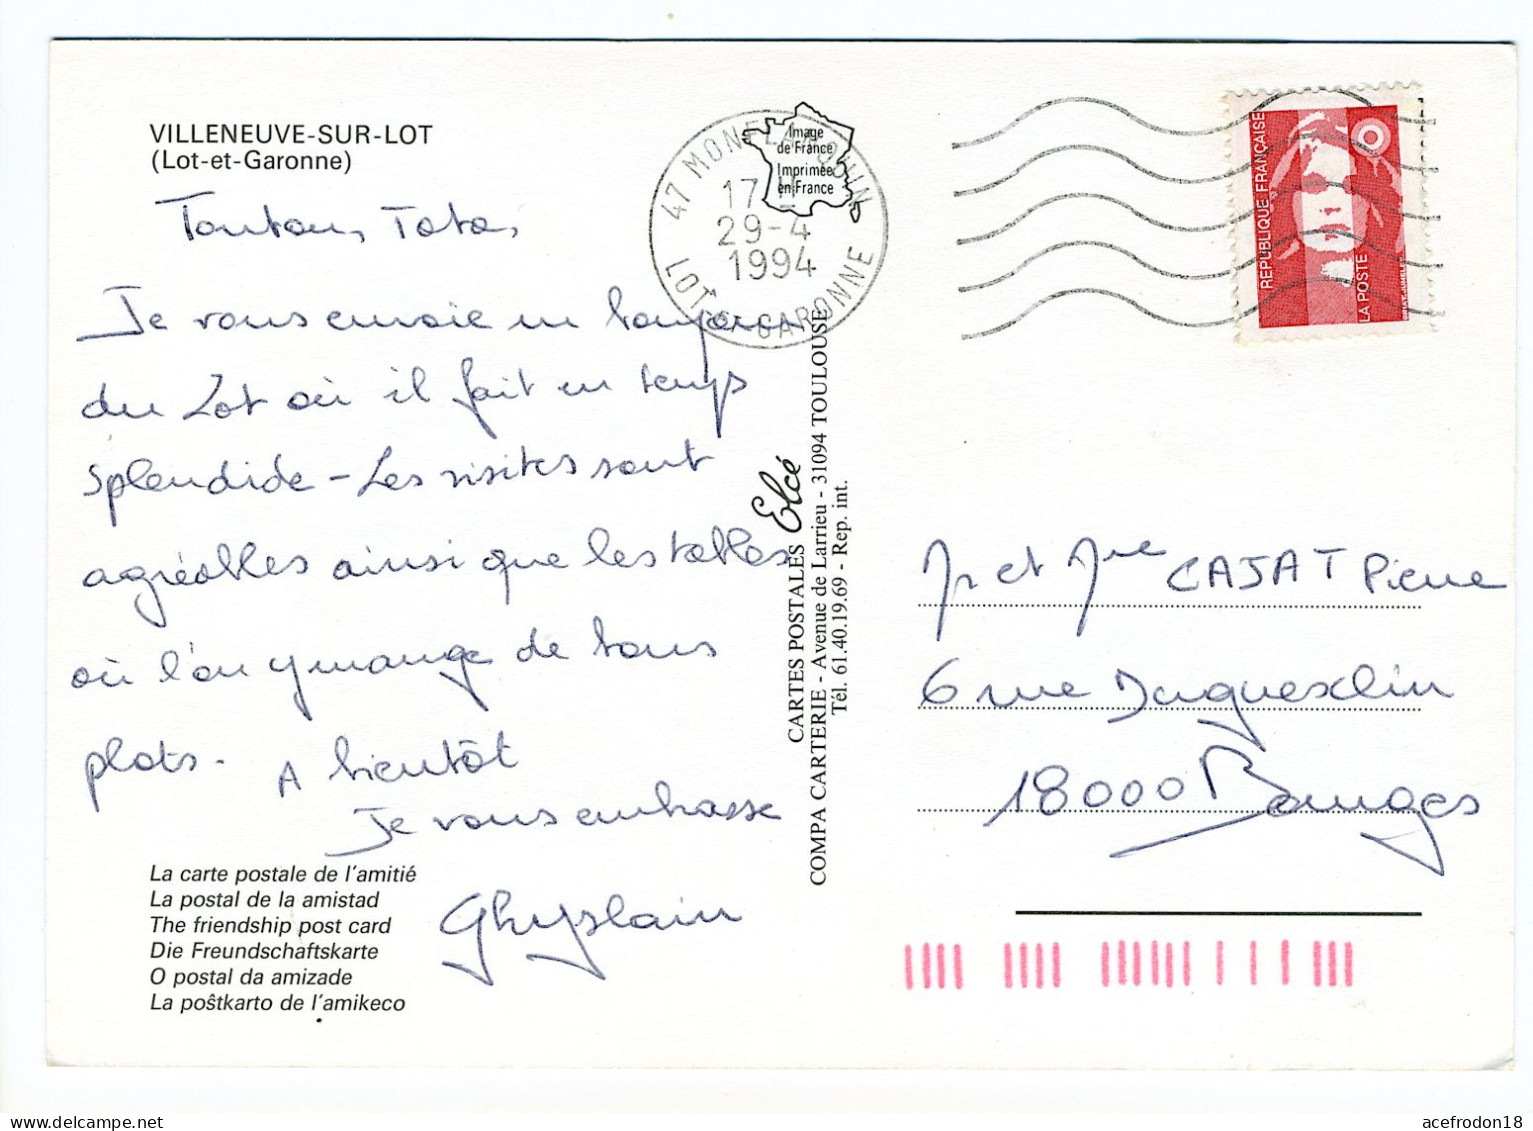 VILLENEUVE-SUR-LOT
(Lot-et-Garonne)
Tonton, Tata,
Je vous envoie un bonjour
du Lot où il fait un temps
splendide - Les visites sont
agréables ainsi que les tables
où l'on y mange de bons
plats. A bientôt
Je vous embrasse
Ghyslain
La carte postale de l'amitié
La postal de la amistad
The friendship post card
Die Freundschaftskarte
O postal da amizade
La poŝtkarto de l'amikeco
47 MONFLANQUIN
17 H
29-4
1994
LOT ET GARONNE
Image
de France
Imprimée
en France
CARTES POSTALES Elcé
COMPA CARTERIE - Avenue de Larrieu - 31094 TOULOUSE
Tél. 61.40.19.69 - Rep. int.
REPUBLIQUE FRANÇAISE
LA POSTE
Mr et Mme CAJAT Pierre
6 rue Duguesclin
18000 Bourges
acefrodon18